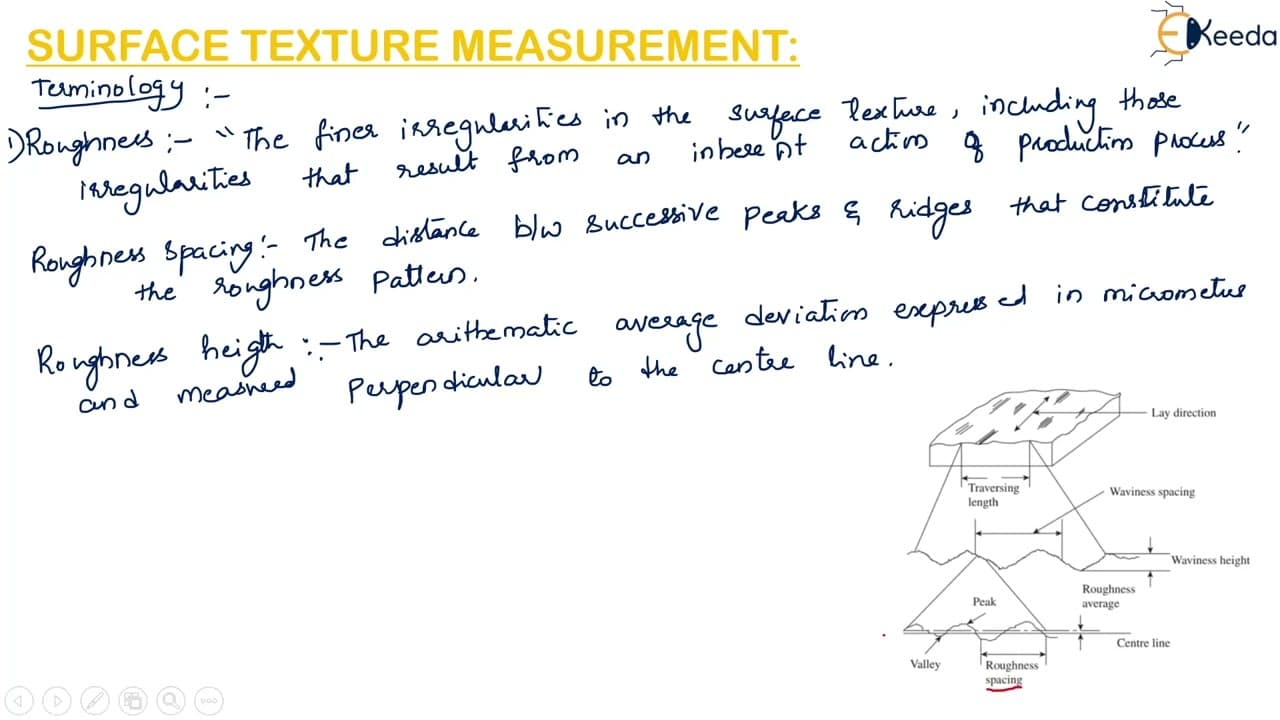 SURFACE TEXTURE MEASUREMENT:
EKeeda
Terminology :-
1) Roughness :- "The finer irregularities in the surface texture, including those
irregularities that result from an inherent action of production process".
Roughness spacing:- The distance b/w successive peaks & ridges that constitute
the roughness pattern.
Roughness heigth :- The arithematic average deviation expressed in micrometer
and measured perpendicular to the centre line.
Lay direction
Traversing
length
Waviness spacing
Waviness height
Roughness
average
Peak
Centre line
Valley
Roughness
spacing